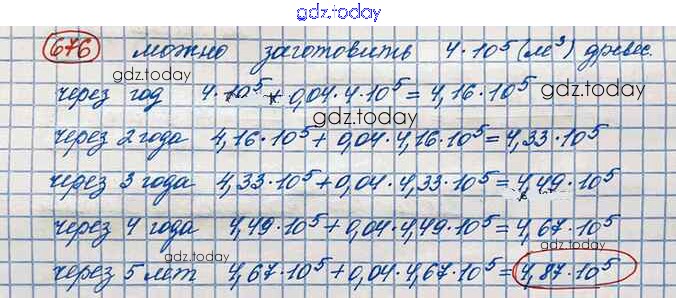 gdz.today
676 можно заготовить 4·10⁵ (м³) древес.
gdz.today
через год 4·10⁵ + 0,04·4·10⁵ = 4,16·10⁵
gdz.today
gdz.today
через 2 года 4,16·10⁵ + 0,04·4,16·10⁵ = 4,33·10⁵
через 3 года 4,33·10⁵ + 0,04·4,33·10⁵ = 4,49·10⁵
через 4 года 4,49·10⁵ + 0,04·4,49·10⁵ = 4,67·10⁵
gdz.today
gdz.today
через 5 лет 4,67·10⁵ + 0,04·4,67·10⁵ = 4,87·10⁵